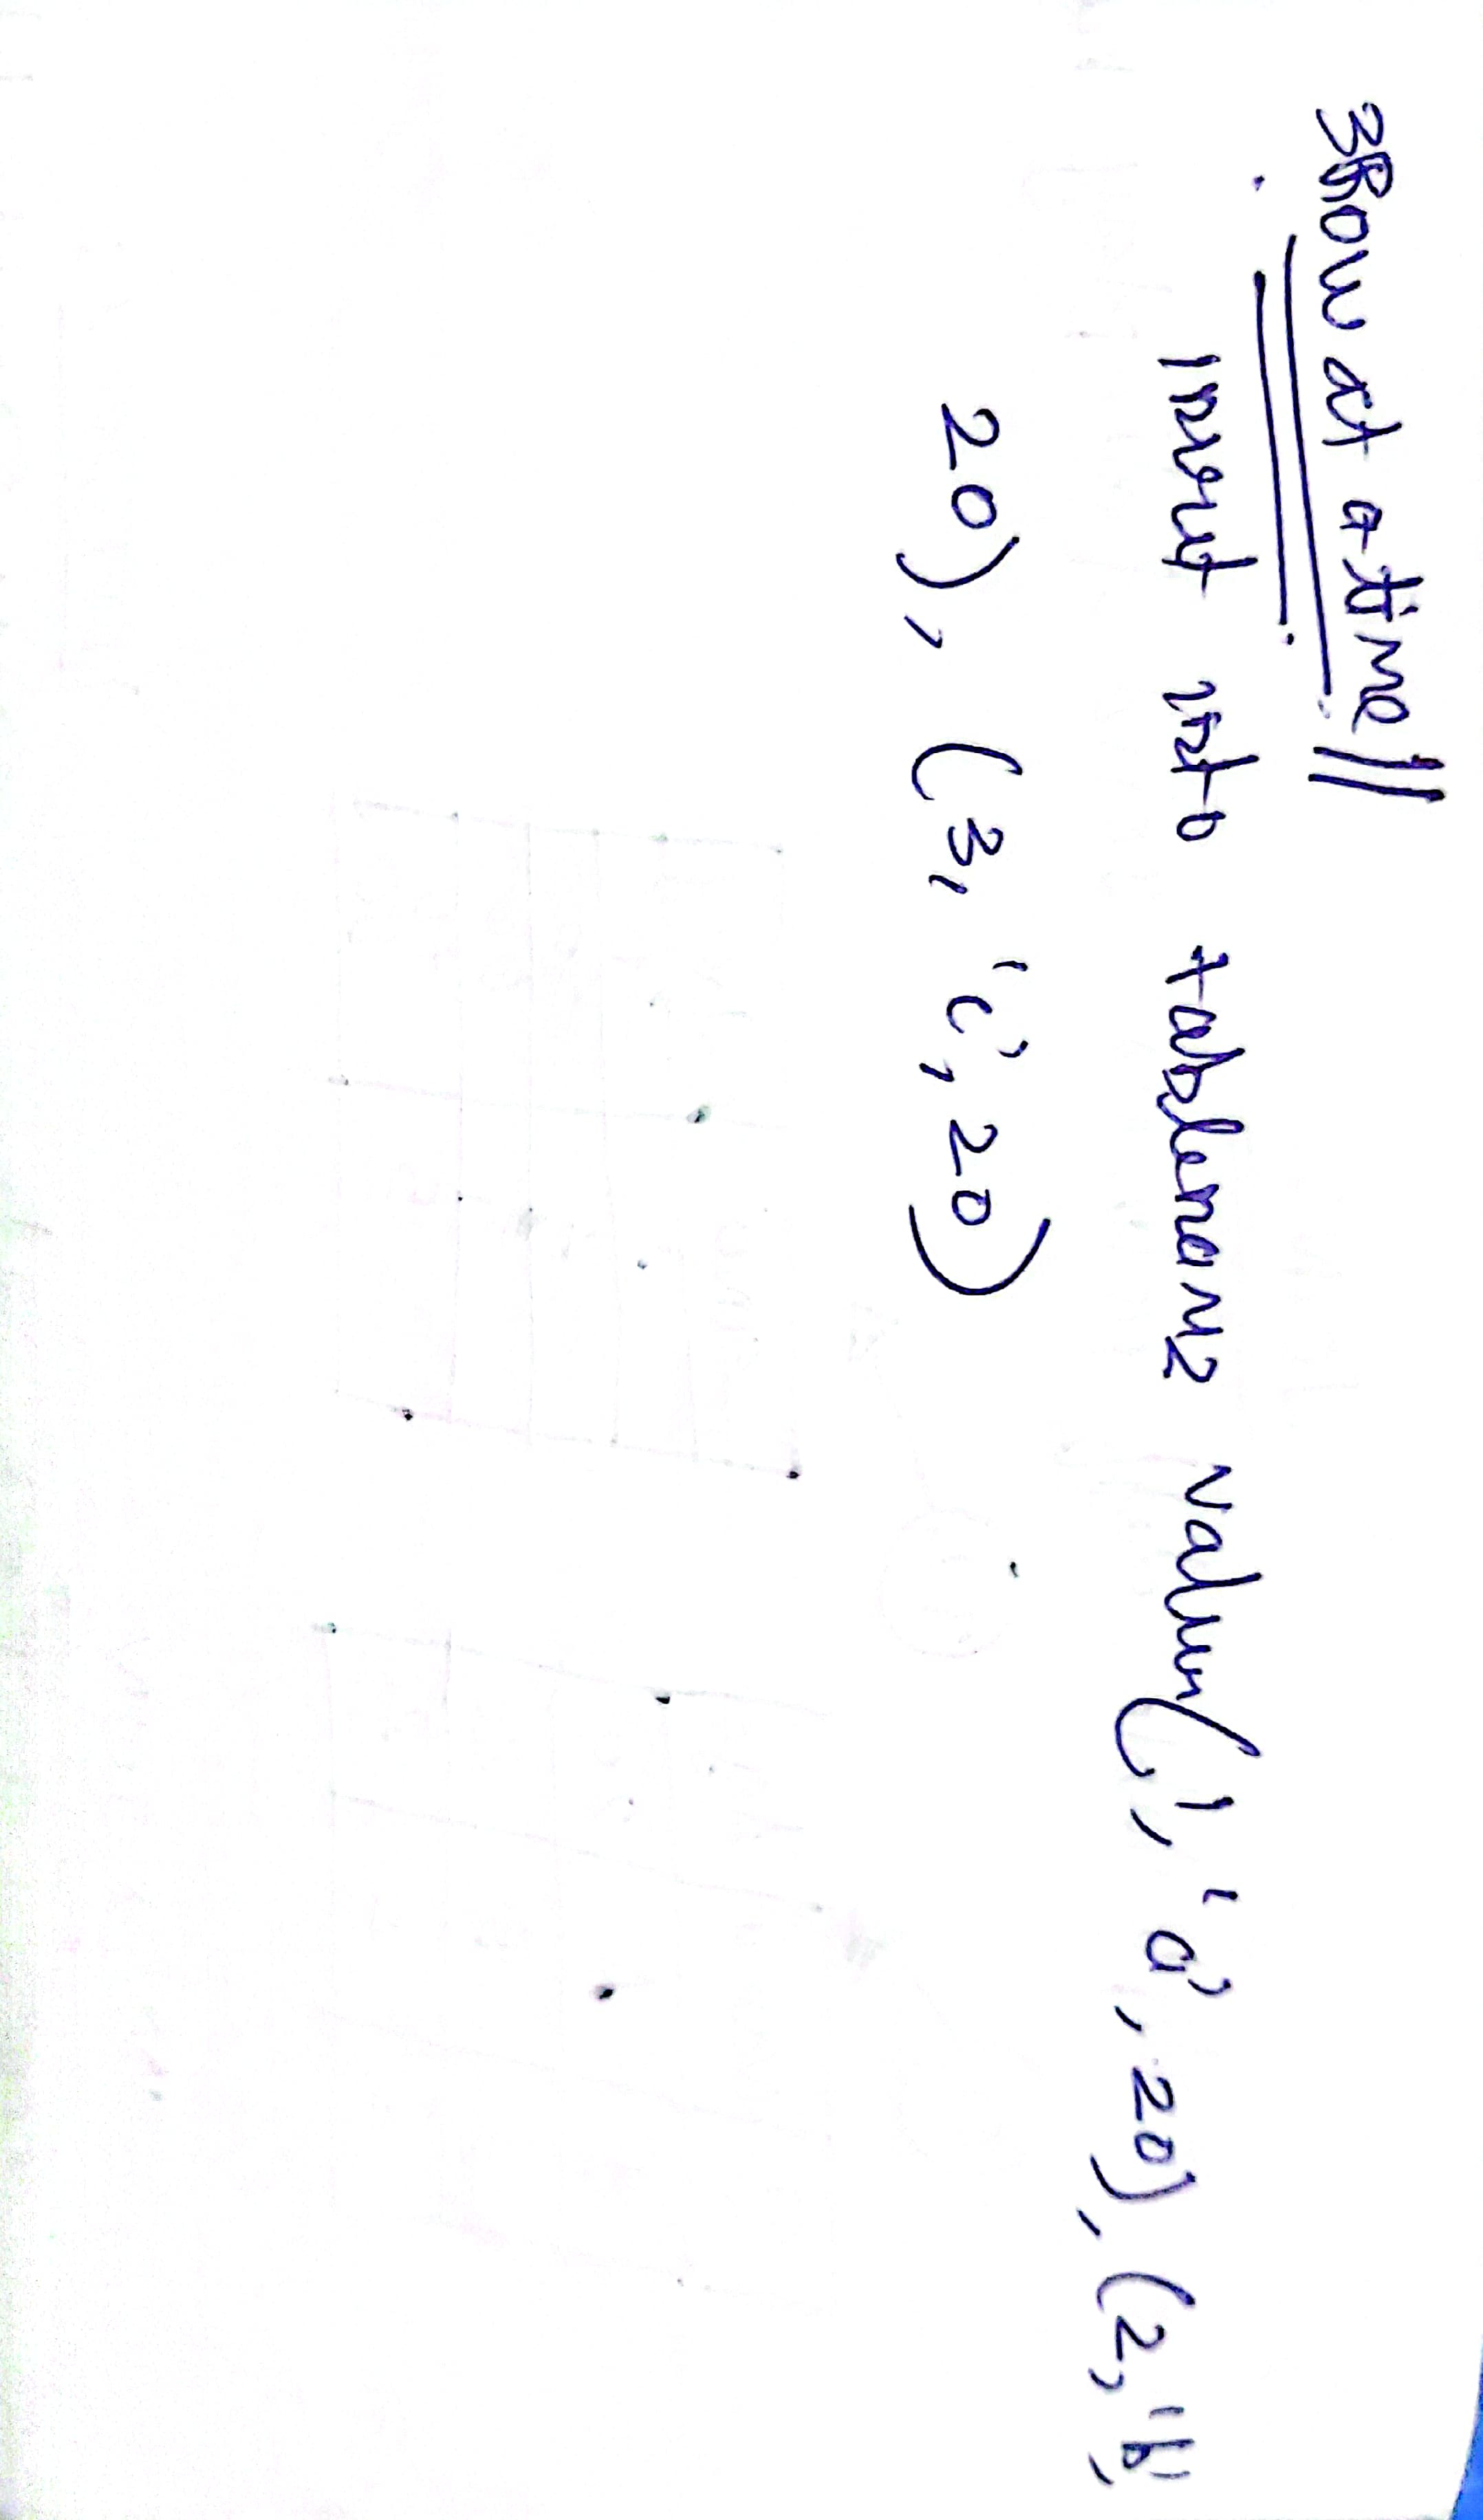 3Row at a time||
Insert into tablename values(1, 'a', 20), (2, 'b',
20), (3, 'c', 20)